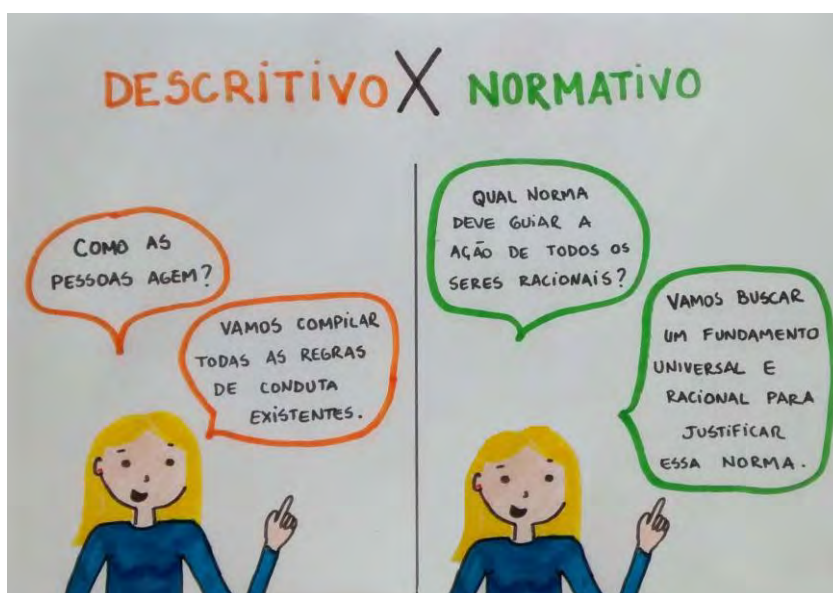 DESCRITIVO X NORMATIVO
COMO AS
PESSOAS AGEM?
VAMOS COMPILAR
TODAS AS REGRAS
DE CONDUTA
EXISTENTES.
QUAL NORMA
DEVE GUIAR A
AÇÃO DE TODOS OS
SERES RACIONAIS?
VAMOS BUSCAR
UM FUNDAMENTO
UNIVERSAL E
RACIONAL PARA
JUSTIFICAR
ESSA NORMA.